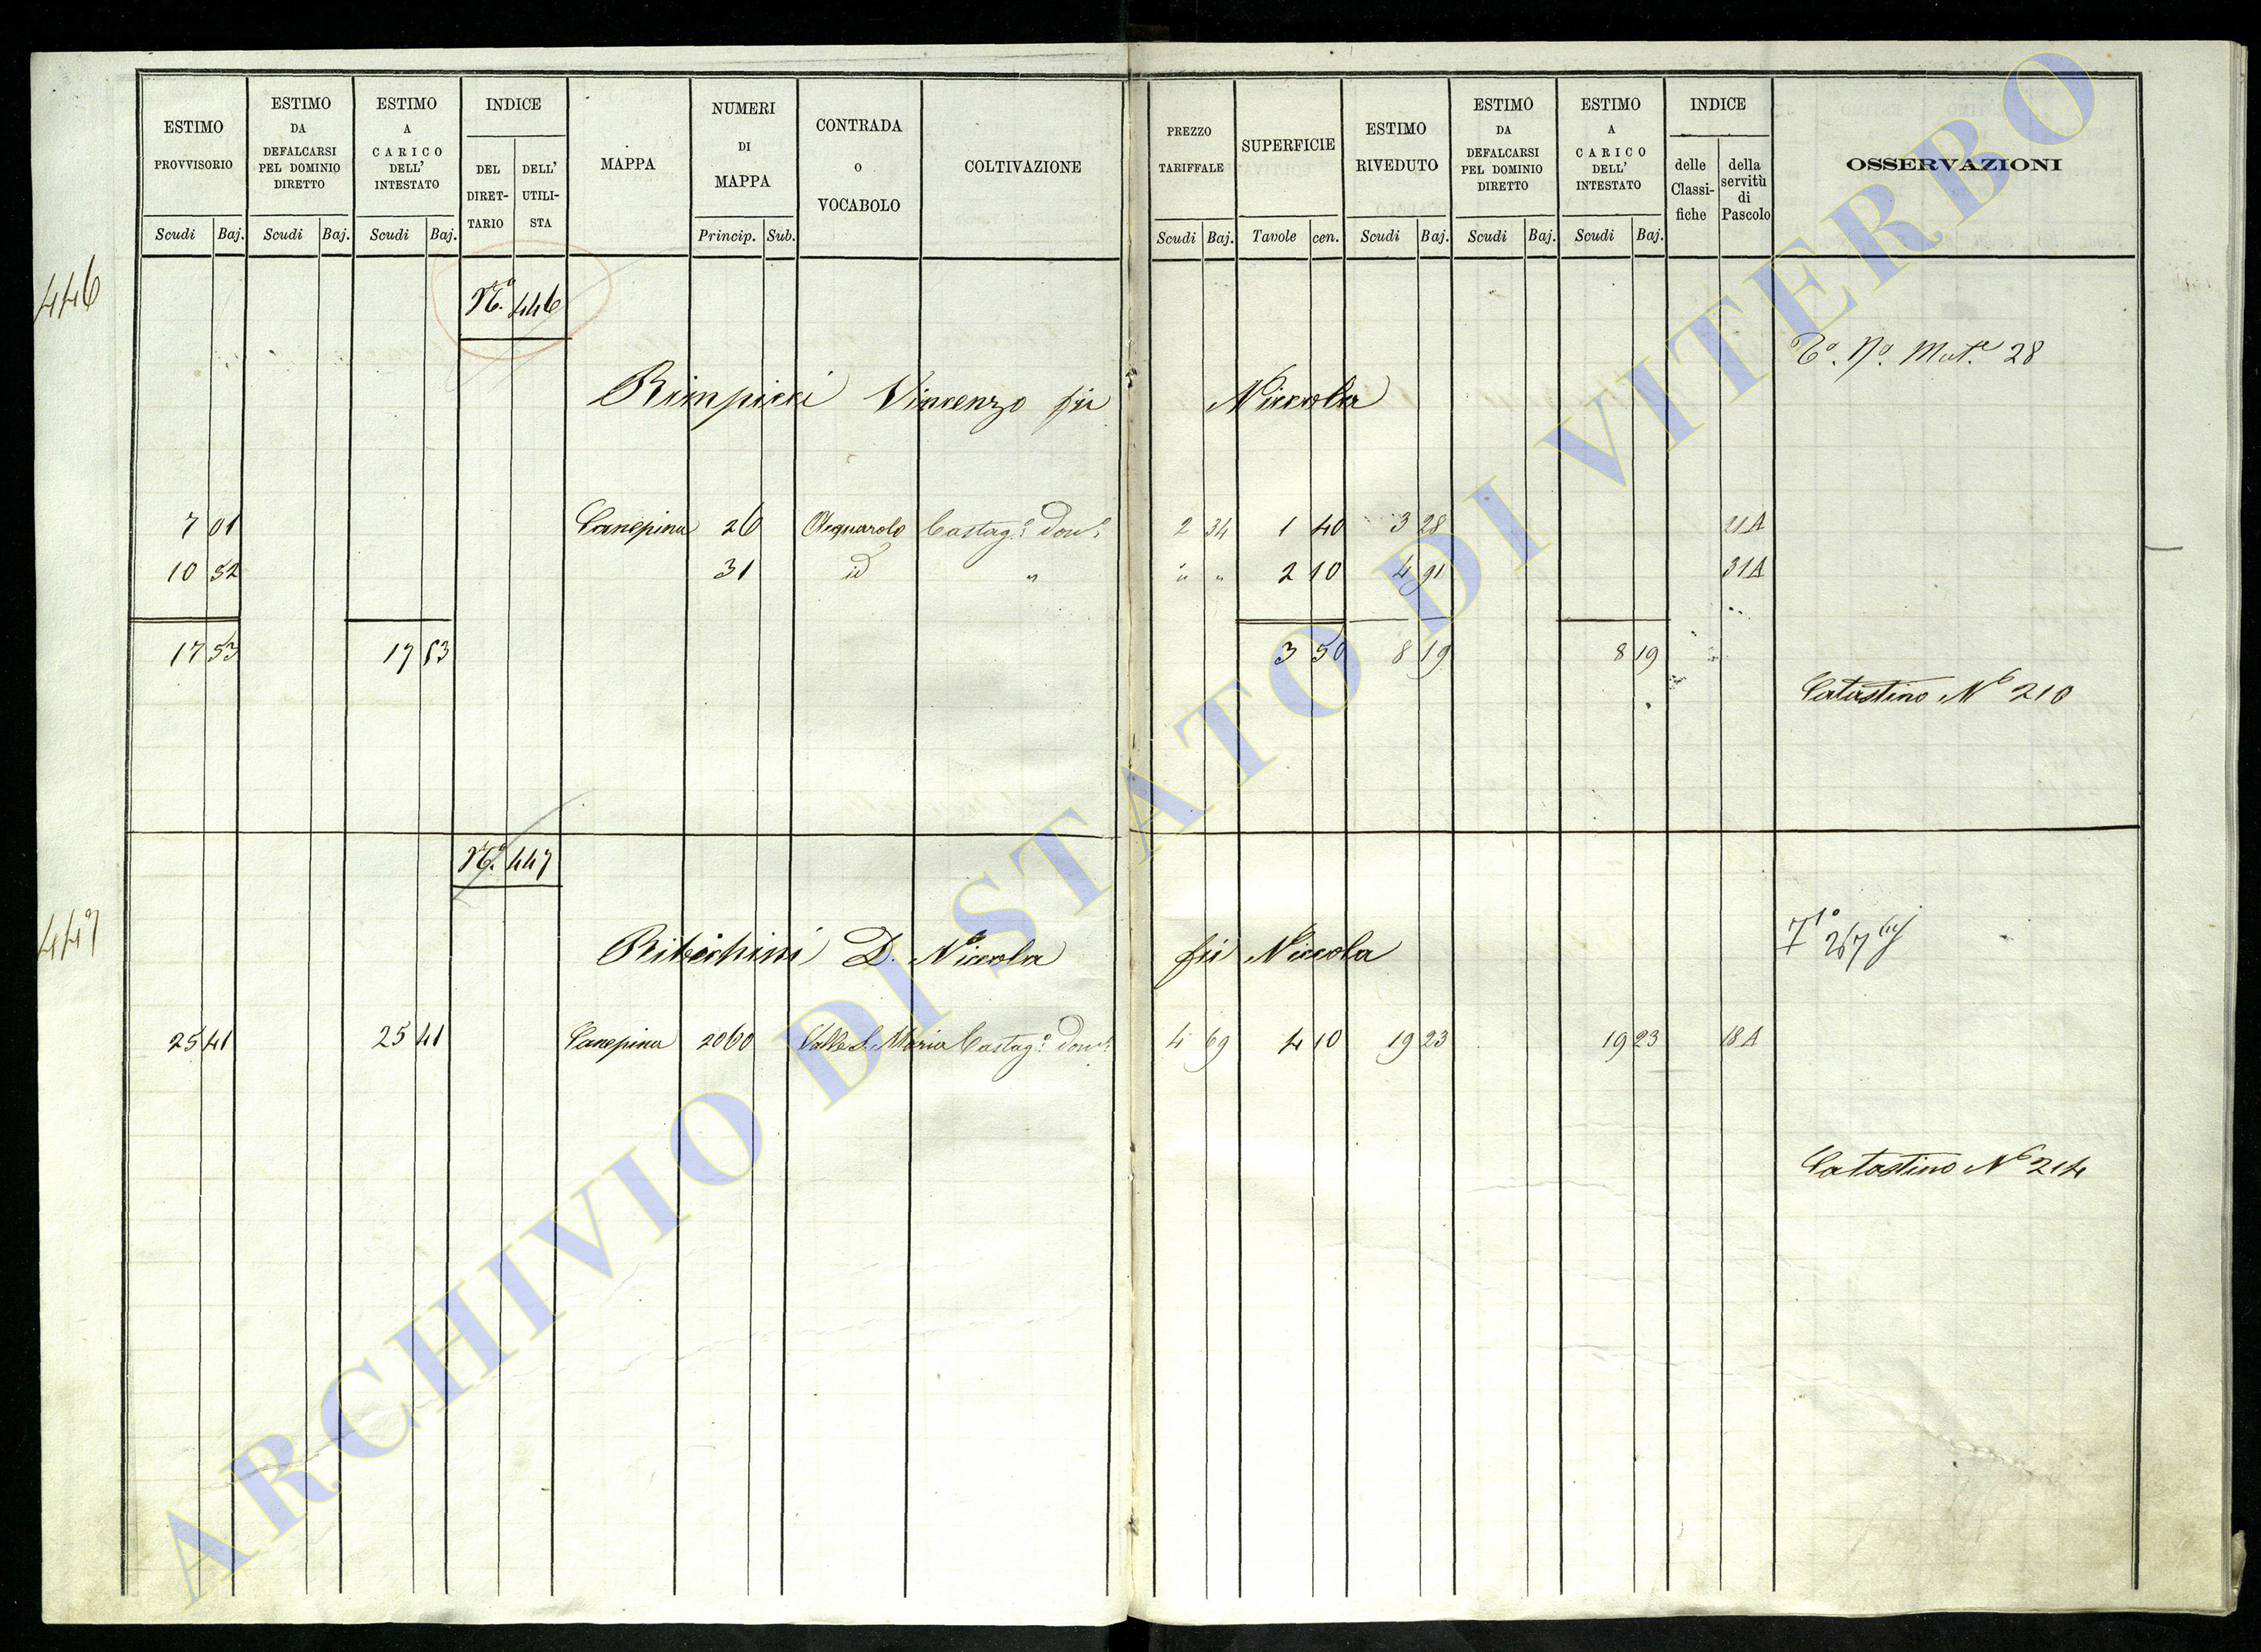 ESTIMO PROVVISORIO
Scudi Baj.
ESTIMO DA DEFALCARSI PEL DOMINIO DIRETTO
Scudi Baj.
ESTIMO A CARICO DELL' INTESTATO
Scudi Baj.
INDICE
DEL DIRET-TARIO
DELL' UTILI-STA
MAPPA
NUMERI DI MAPPA
Princip. Sub.
CONTRADA o VOCABOLO
COLTIVAZIONE
PREZZO TARIFFALE
Scudi Baj.
SUPERFICIE
Tavole cen.
ESTIMO RIVEDUTO
Scudi Baj.
ESTIMO DA DEFALCARSI PEL DOMINIO DIRETTO
Scudi Baj.
ESTIMO A CARICO DELL' INTESTATO
Scudi Baj.
INDICE
delle Classi-fiche
della servitù di Pascolo
OSSERVAZIONI
446
N.º 446
Mat.e 28
Rimpicci Vincenzo fu Niccola
7 01 Canepina 26 Acquarolo Castag.º 2 34 1 40 3 28 21A
10 52 31 id " " " 2 10 4 91 31A
17 53 17 53 3 50 8 19 8 19
Catastino Nº 210
N.º 447
447
Ribichini D. Niccola fu Niccola
267
25 41 25 41 Canepina 2060 Valle S. Maria Castag.º 4 69 4 10 19 23 19 23 18A
Catastino Nº 214
ARCHIVIO DI STATO DI VITERBO